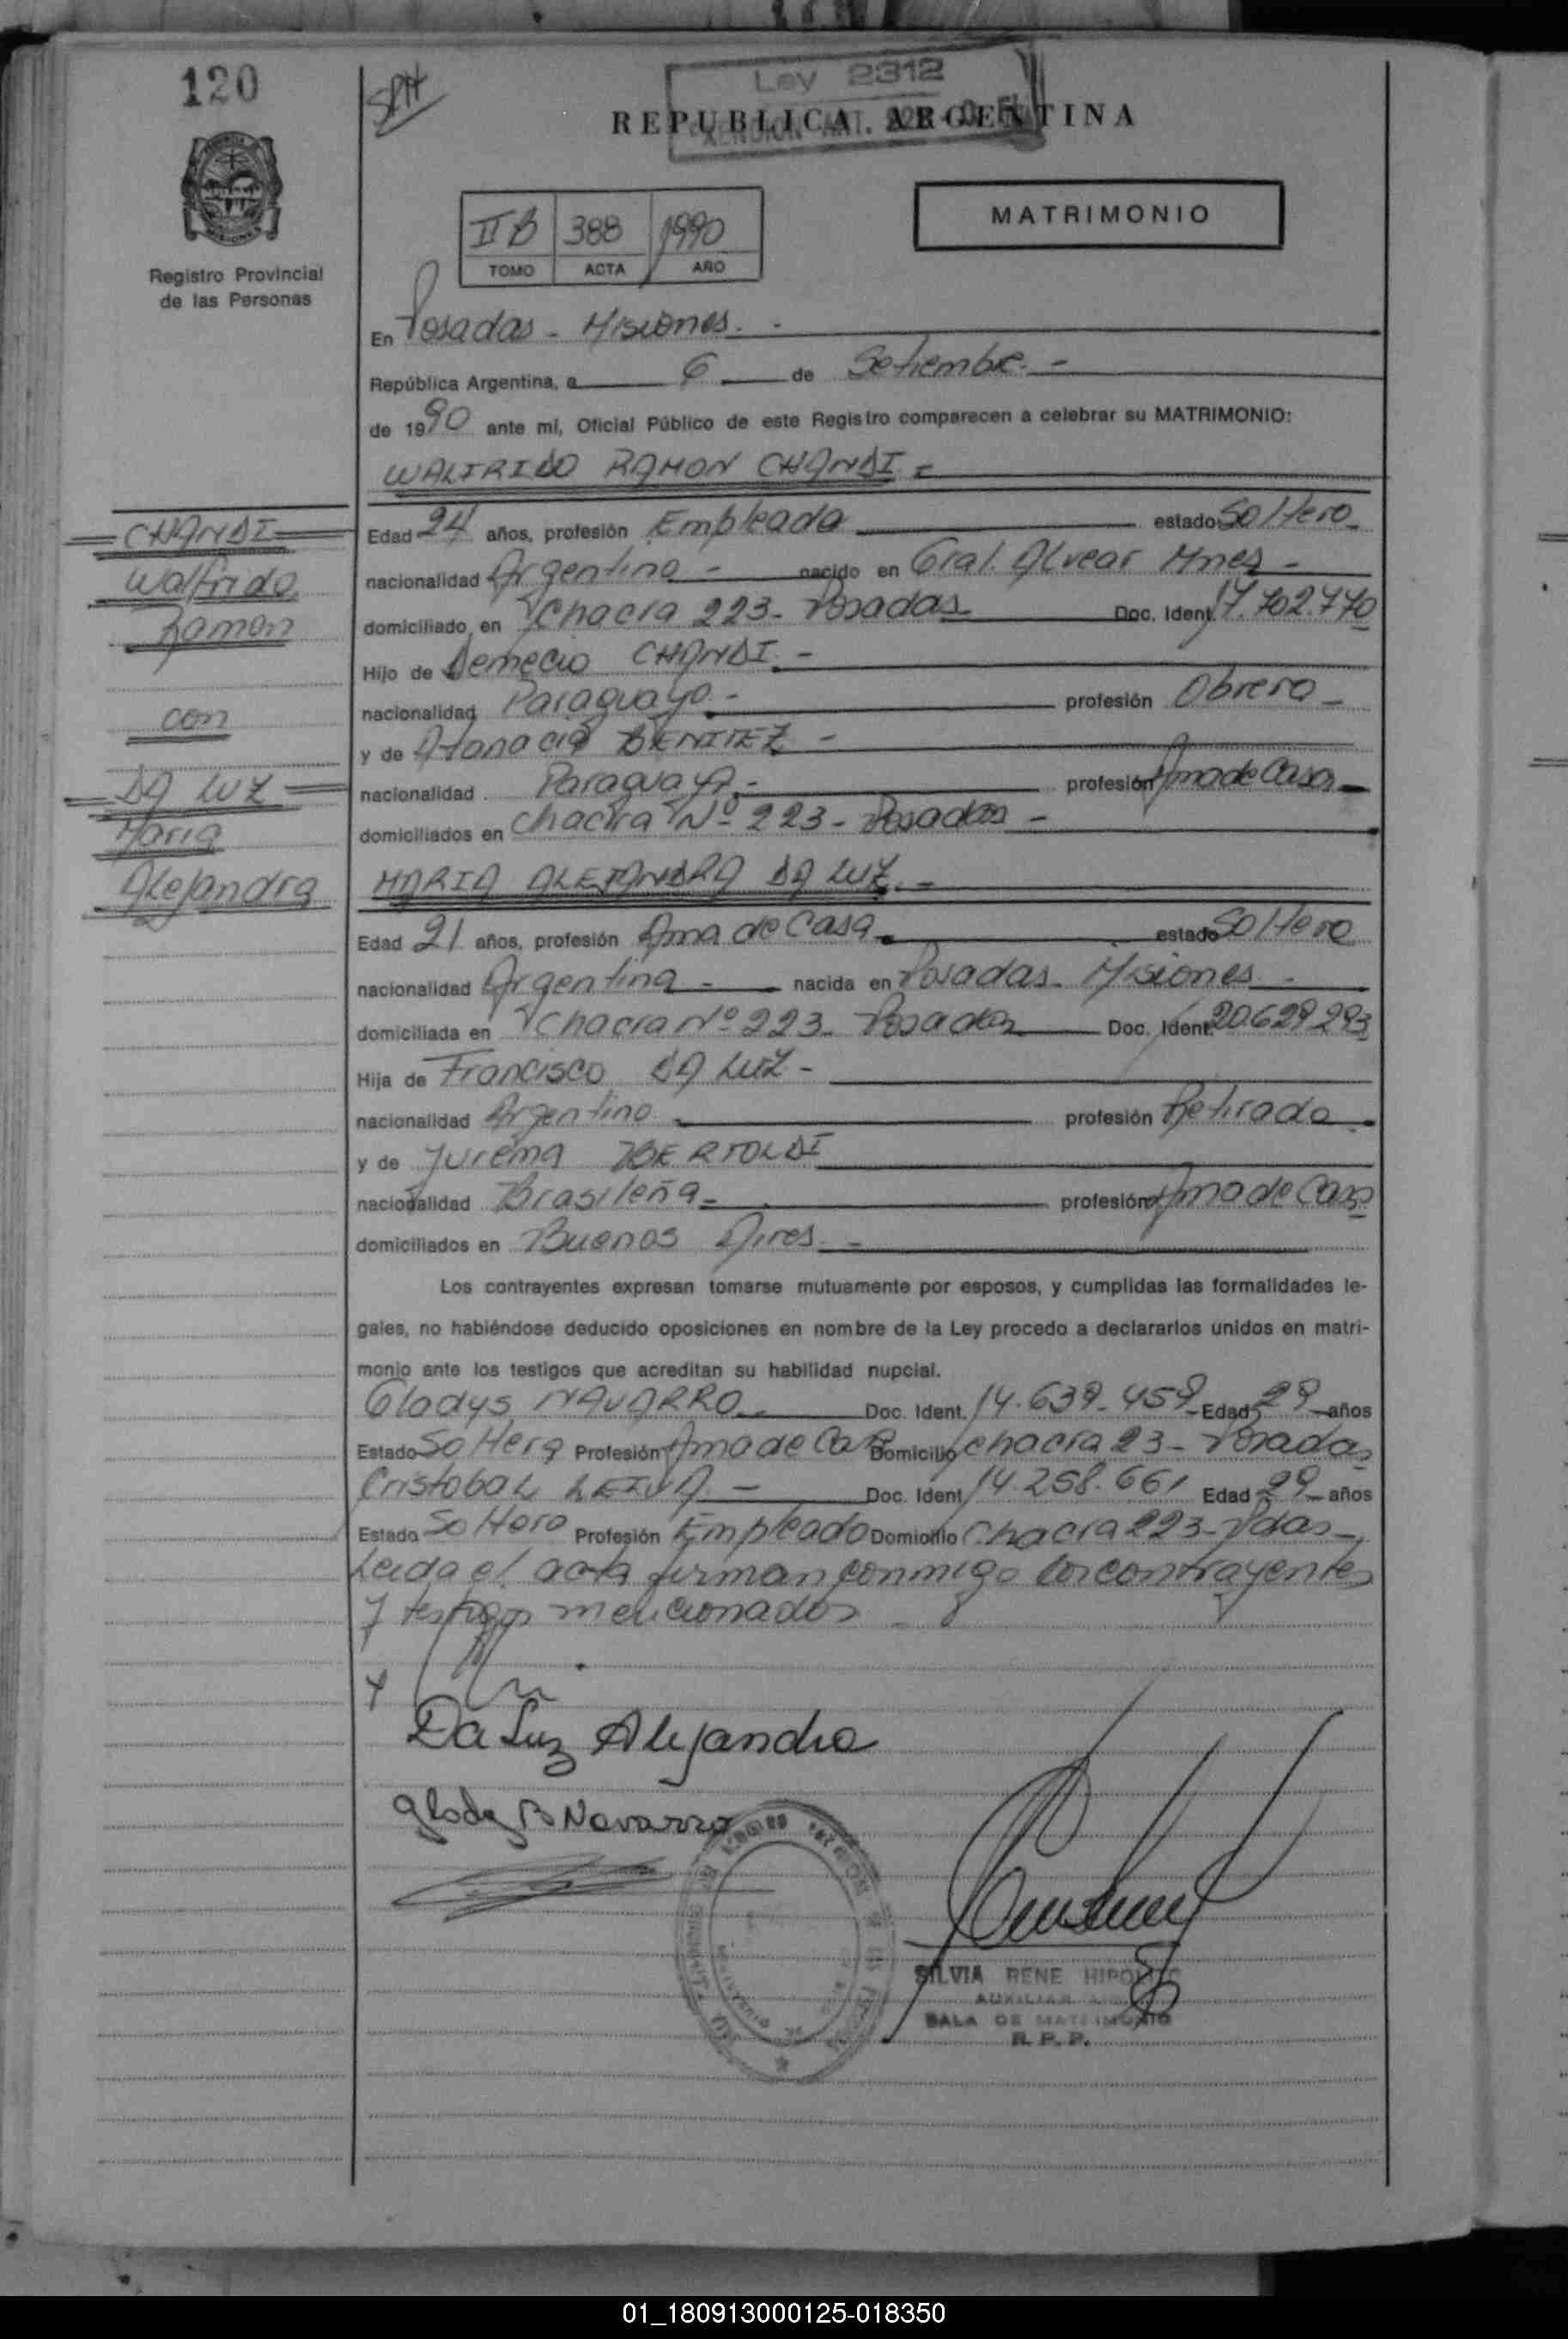 120
SRH
Ley 2312
REPUBLICA ARGENTINA
II B 388 1990
TOMO ACTA AÑO
MATRIMONIO
Registro Provincial
de las Personas
En Posadas - Misiones. -
República Argentina, a 6 de Setiembre. -
de 1990 ante mí, Oficial Público de este Registro comparecen a celebrar su MATRIMONIO:
WALFRIDO RAMON CHANDI =
CHANDI
Walfrido
Ramon
con
DA LUZ
Maria
Alejandra
Edad 24 años, profesión Empleado estado Soltero
nacionalidad Argentino - nacido en Gral. Alvear Mnes -
domiciliado en Chacra 223 - Posadas Doc. Ident. 17.702.770
Hijo de Demecio CHANDI. -
nacionalidad Paraguayo. - profesión Obrero -
y de Atanacia BENITEZ -
nacionalidad Paraguaya. - profesión Ama de Casa
domiciliados en Chacra Nº 223 - Posadas -
MARIA ALEJANDRA DA LUZ. -
Edad 21 años, profesión Ama de Casa estado Soltera
nacionalidad Argentina - nacida en Posadas - Misiones -
domiciliada en Chacra Nº 223 - Posadas Doc. Ident. 20.629.293
Hija de Francisco DA LUZ -
nacionalidad Argentino profesión Retirado
y de Jurema BERTOLDI
nacionalidad Brasileña - profesión Ama de Casa
domiciliados en Buenos Aires. -
Los contrayentes expresan tomarse mutuamente por esposos, y cumplidas las formalidades le-
gales, no habiéndose deducido oposiciones en nombre de la Ley procedo a declararlos unidos en matri-
monio ante los testigos que acreditan su habilidad nupcial.
Gladys NAVARRO Doc. Ident. 14.639.459 Edad 29 años
Estado Soltera Profesión Ama de Casa Domicilio Chacra 23 - Posadas
Cristobal LEIVA - Doc. Ident. 14.258.661 Edad 29 años
Estado Soltero Profesión Empleado Domicilio Chacra 223 - Pdas -
Leida el acta firman conmigo los contrayentes
y testigos mencionados
Da Luz Alejandra
Glady B Navarro
SILVIA RENE HIPOLITO
AUXILIAR
SALA DE MATRIMONIO
R. P. P.
01_180913000125-018350